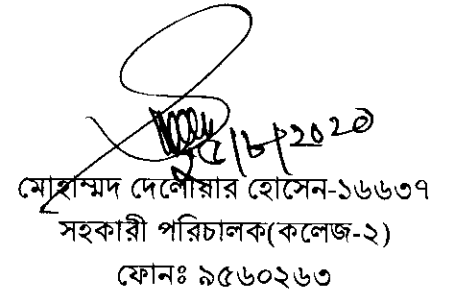 ২৫/৮/2020
মোহাম্মদ দেলোয়ার হোসেন-১৬৬৩৭
সহকারী পরিচালক(কলেজ-২)
ফোনঃ ৯৫৬০২৬৩